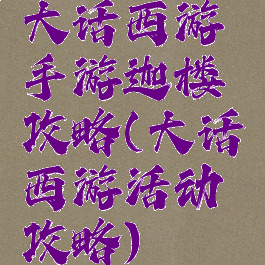 大话西游
手游迦楼
攻略(大话
西游活动
攻略)